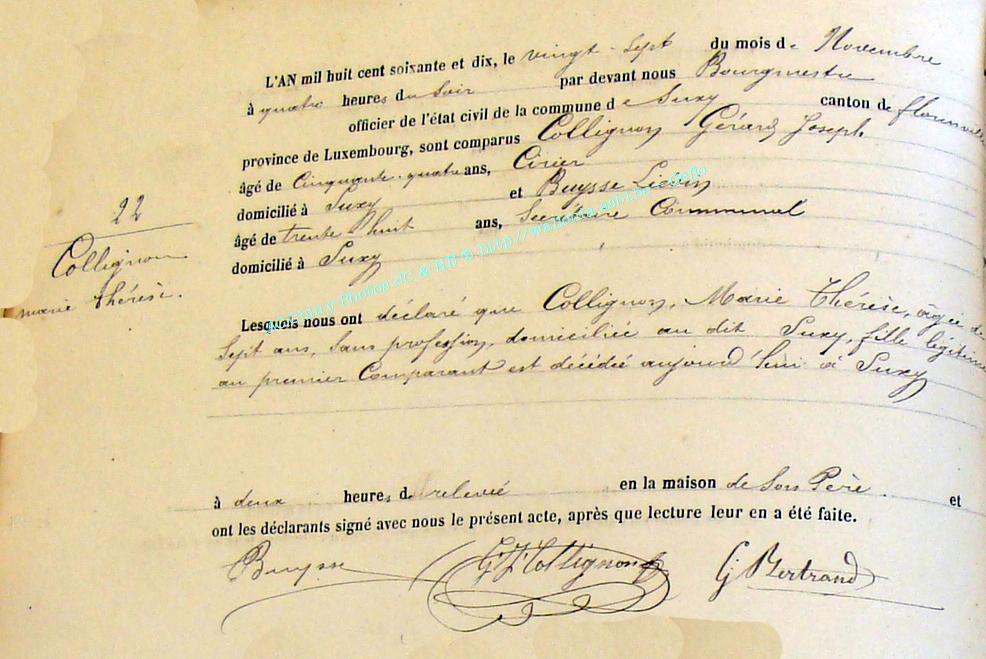 L'AN mil huit cent soixante et dix, le vingt-sept du mois de Novembre
à quatre heures du Soir par devant nous Bourgmestre
officier de l'état civil de la commune de Suxy canton de florenville
province de Luxembourg, sont comparus Collignon Gérard Joseph
âgé de Cinquante-quatre ans, Cirier
domicilié à Suxy et Buysse Liévin
âgé de trente huit ans, Secrétaire Communal
domicilié à Suxy
22
Collignon
marie thérèse.
Lesquels nous ont déclaré que Collignon, Marie Thérèse, âgée de
Sept ans, Sans profession, domiciliée au dit Suxy, fille légitime
au premier Comparant est décédée aujourd'hui à Suxy
à deux heures de relevée en la maison de Son Père. et
ont les déclarants signé avec nous le présent acte, après que lecture leur en a été faite.
Buysse GJ Collignon GJ Bertrand